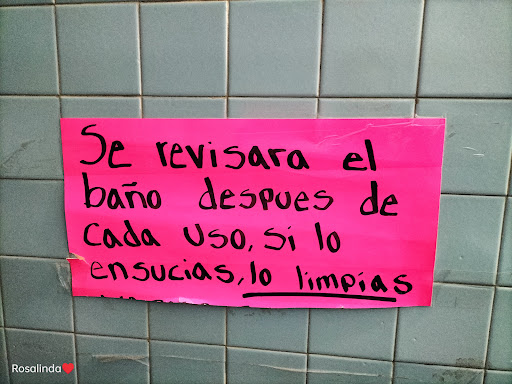 Se revisara el
baño despues de
cada uso, si lo
ensucias, lo limpias
Rosalinda❤️